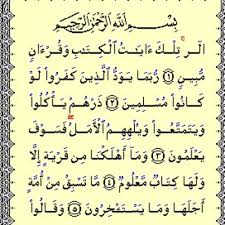 بِسْمِ ٱللَّهِ ٱلرَّحْمَٰنِ ٱلرَّحِيمِ
الٓر ۚ تِلْكَ ءَايَٰتُ ٱلْكِتَٰبِ وَقُرْءَانٍ
مُّبِينٍ ۝١ رُّبَمَا يَوَدُّ ٱلَّذِينَ كَفَرُوا۟ لَوْ
كَانُوا۟ مُسْلِمِينَ ۝٢ ذَرْهُمْ يَأْكُلُوا۟
وَيَتَمَتَّعُوا۟ وَيُلْهِهِمُ ٱلْأَمَلُ ۖ فَسَوْفَ
يَعْلَمُونَ ۝٣ وَمَآ أَهْلَكْنَا مِن قَرْيَةٍ إِلَّا
وَلَهَا كِتَابٌ مَّعْلُومٌ ۝٤ مَّا تَسْبِقُ مِنْ أُمَّةٍ
أَجَلَهَا وَمَا يَسْتَـْٔخِرُونَ ۝٥ وَقَالُوا۟